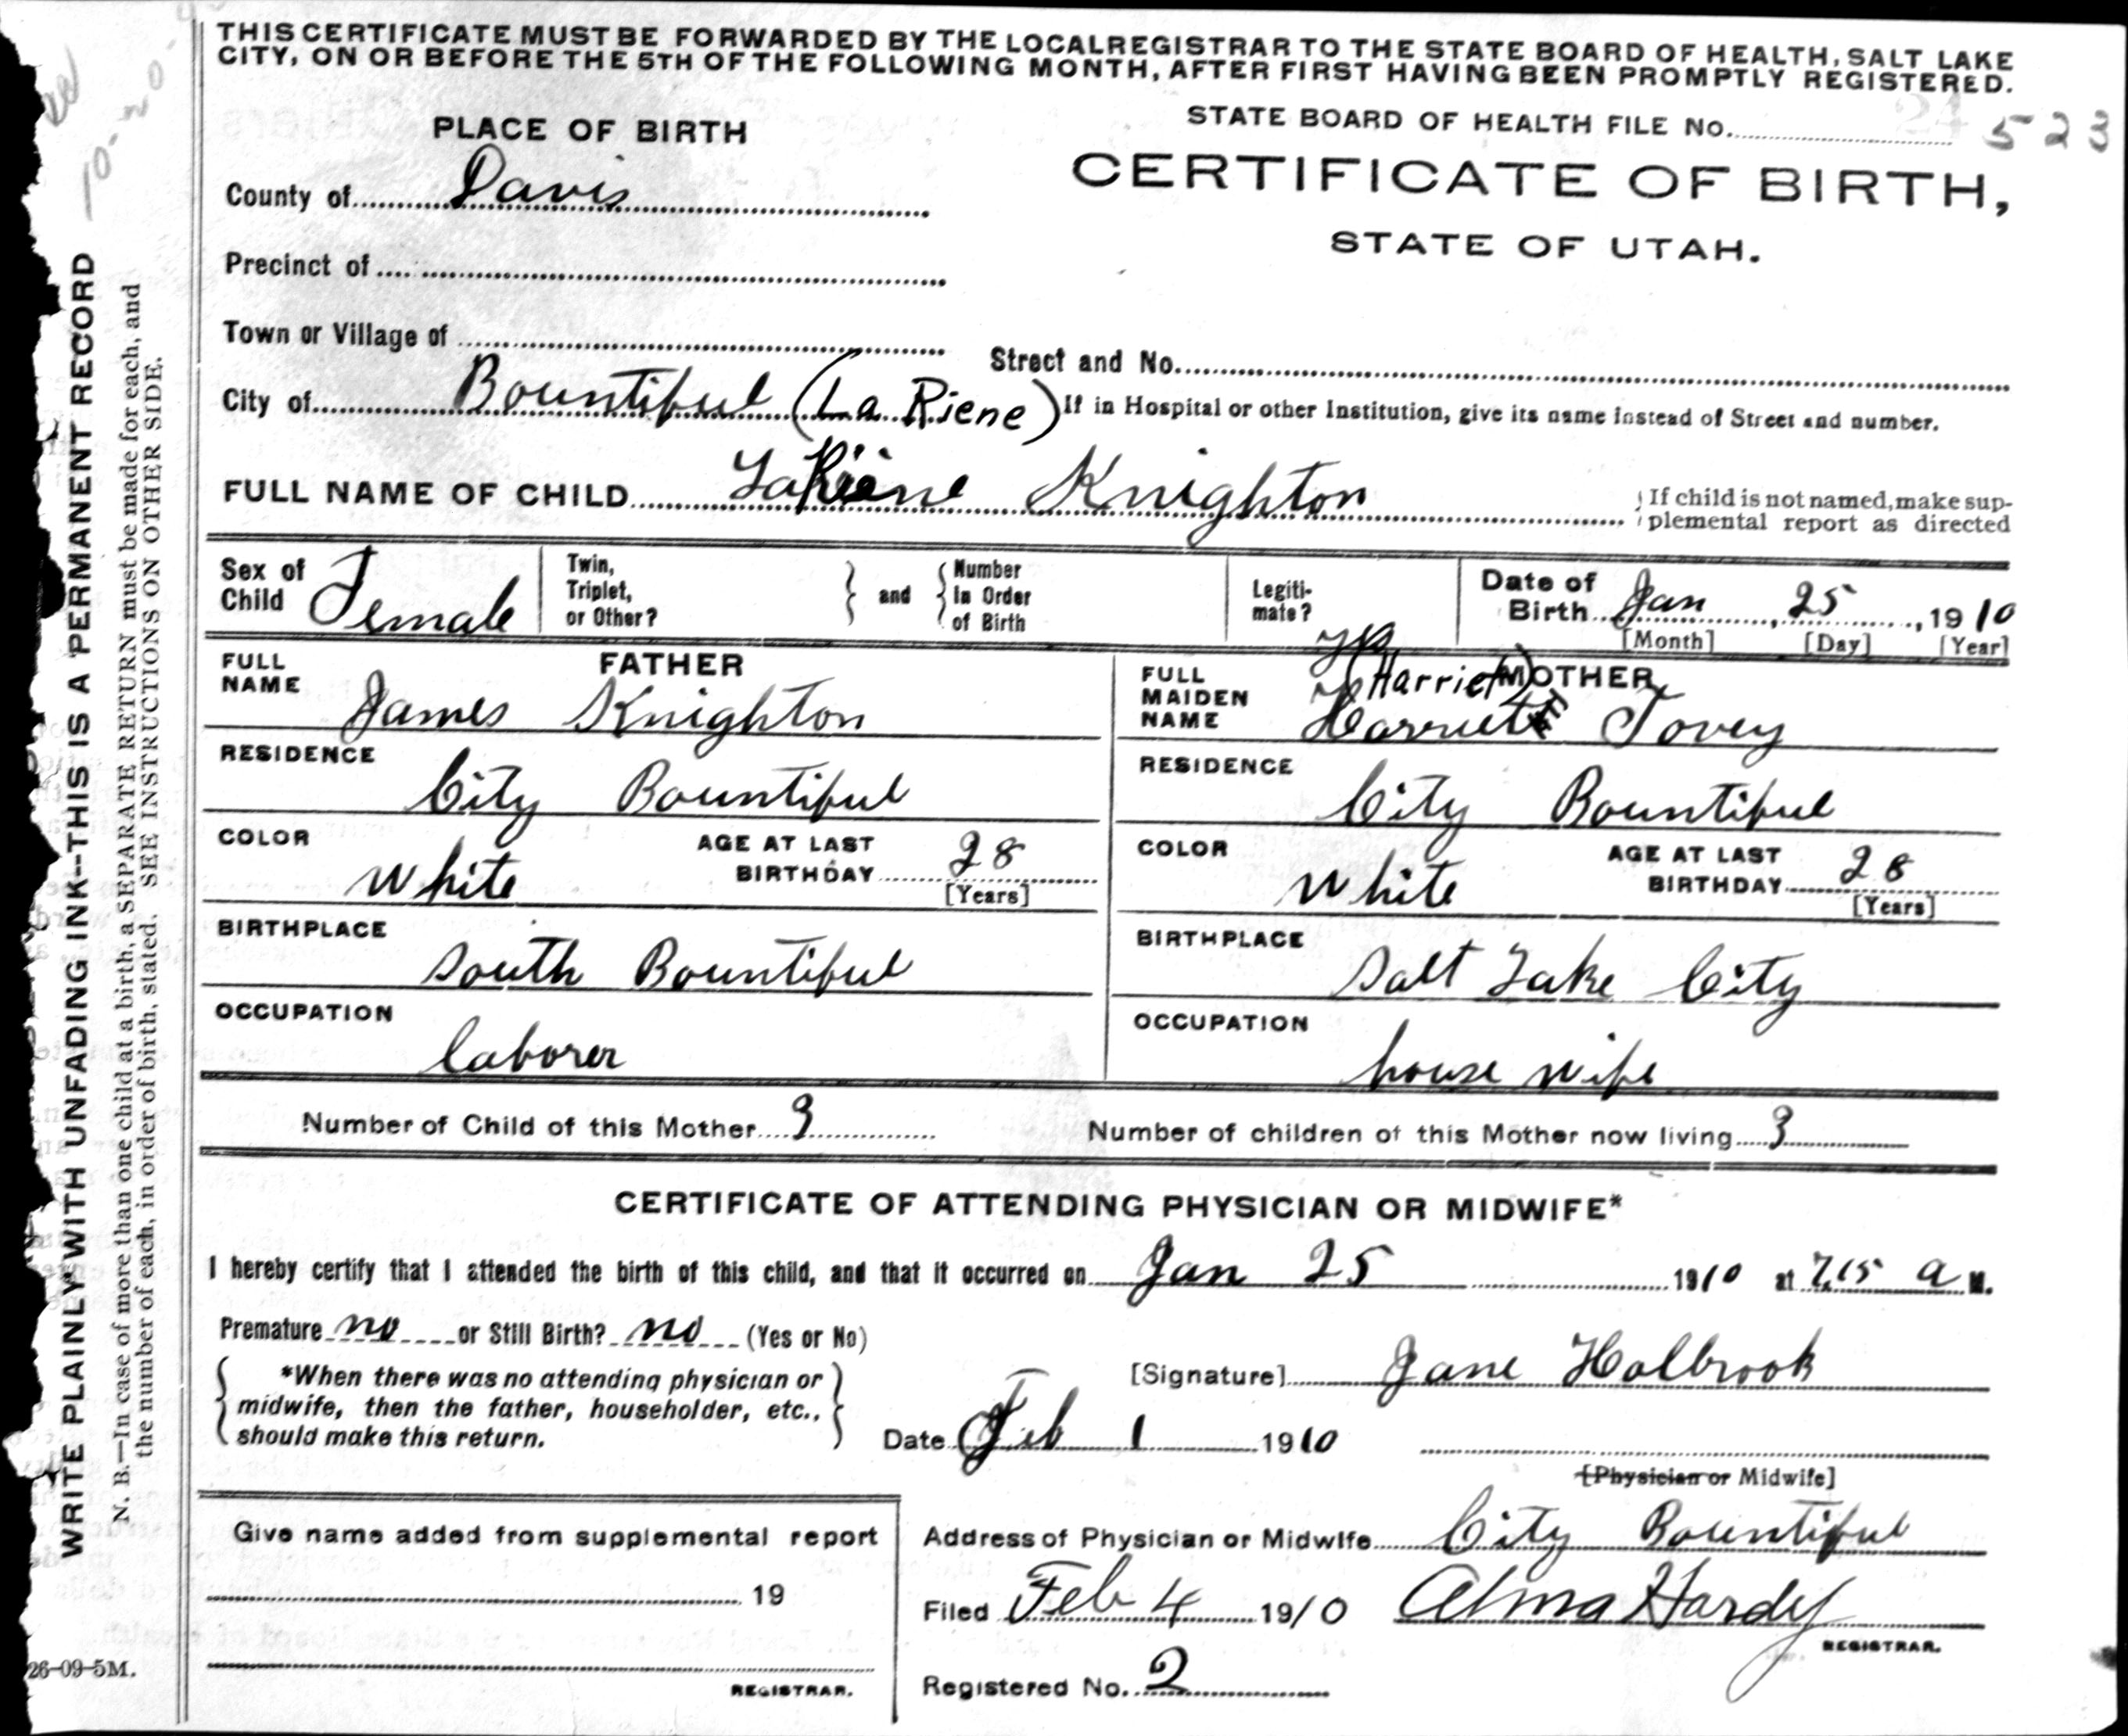 THIS CERTIFICATE MUST BE FORWARDED BY THE LOCAL REGISTRAR TO THE STATE BOARD OF HEALTH, SALT LAKE
CITY, ON OR BEFORE THE 5TH OF THE FOLLOWING MONTH, AFTER FIRST HAVING BEEN PROMPTLY REGISTERED.
STATE BOARD OF HEALTH FILE No. 523
PLACE OF BIRTH
CERTIFICATE OF BIRTH,
STATE OF UTAH.
County of Davis
Precinct of
Town or Village of
Street and No.
City of Bountiful (La Riene) If in Hospital or other Institution, give its name instead of Street and number.
FULL NAME OF CHILD LaRiene Knighton
If child is not named, make sup-
plemental report as directed
Sex of Child Female
Twin, Triplet, or Other? and Number In Order of Birth
Legiti-mate? yes
Date of Birth Jan 25, 1910
[Month] [Day] [Year]
FATHER
FULL NAME James Knighton
RESIDENCE City Bountiful
COLOR White AGE AT LAST BIRTHDAY 28
[Years]
BIRTHPLACE South Bountiful
OCCUPATION laborer
MOTHER
(Harriet)
FULL MAIDEN NAME Harriett Tovey
RESIDENCE City Bountiful
COLOR White AGE AT LAST BIRTHDAY 28
[Years]
BIRTHPLACE Salt Lake City
OCCUPATION house wife
Number of Child of this Mother 3 Number of children of this Mother now living 3
CERTIFICATE OF ATTENDING PHYSICIAN OR MIDWIFE*
I hereby certify that I attended the birth of this child, and that it occurred on Jan 25 1910 at 7.15 a M.
Premature no or Still Birth? no (Yes or No)
*When there was no attending physician or
midwife, then the father, householder, etc.,
should make this return.
[Signature] Jane Holbrook
Date Feb 1 1910
[Physician or Midwife]
Give name added from supplemental report
19
REGISTRAR.
Address of Physician or Midwife City Bountiful
Filed Feb 4 1910 Alma Hardy
REGISTRAR.
Registered No. 2
WRITE PLAINLY WITH UNFADING INK--THIS IS A PERMANENT RECORD
N. B.—In case of more than one child at a birth, a SEPARATE RETURN must be made for each, and
the number of each, in order of birth, stated. SEE INSTRUCTIONS ON OTHER SIDE.
26-09-5M.